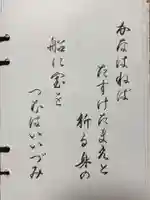 かなはねば
たすけたまへと
祈る身の
船に宝を
つむはいいづみ